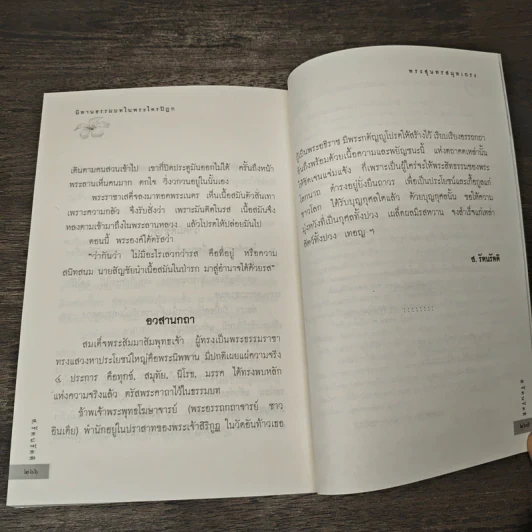 นิทานธรรมบทในพระไตรปิฎก
เดินตามคนสวนเข้าไป เขาก็ปิดประตูมันออกไม่ได้ ครั้นถึงหน้า
พระลานเห็นคนมาก ตกใจ วิ่งวกวนอยู่ในนั้นเอง
พระราชาเสด็จลงมาทอดพระเนตร เห็นเนื้อมันตัวสั่นเทา
เพราะความกลัว จึงรับสั่งว่า เพราะมันติดในรส เนื้อสมันจึง
หลงตามเข้ามาถึงในพระลานหลวง แล้วโปรดให้ปล่อยมันไป
ตอนนี้ พระองค์ได้ตรัสว่า
"ว่ากันว่า ไม่มีอะไรเลวกว่ารส คือที่อยู่ หรือความ
สนิทสนม นายสัญชัยนำเนื้อสมันในป่ารก มาสู่อำนาจได้ด้วยรส"
อวสานกถา
สมเด็จพระสัมมาสัมพุทธเจ้า ผู้ทรงเป็นพระธรรมราชา
ทรงแสวงหาประโยชน์ใหญ่คือพระนิพพาน มีปกติเผยแผ่ความจริง
๔ ประการ คือทุกข์, สมุทัย, นิโรธ, มรรค ได้ทรงพบหลัก
แห่งความจริงแล้ว ตรัสพระคาถาไว้ในธรรมบท
ข้าพเจ้าพระพุทธโฆษาจารย์ (พระอรรถกถาจารย์ ชาว
อินเดีย) พำนักอยู่ในปราสาทของพระเจ้าสิริกูฏ ในวัดอันท้าวเธอ
ส.รัตนรัตติ
พระสุนทรสมุทเถระ
ผู้เป็นพระอธิราช มีพระกตัญญูโปรดให้สร้างไว้ เรียบเรียงอรรถกถา
อันถึงพร้อมด้วยเนื้อความและพยัญชนะนี้ แห่งคาถาเหล่านั้น
ให้ชัดเจนแจ่มแจ้ง ก็เพราะเป็นผู้ใคร่จะให้พระสัทธรรมของพระ
โลกนาถ ดำรงอยู่ยั่งยืนถาวร เพื่อเป็นประโยชน์และเกื้อกูลแก่
ชาวโลก ได้รับบุญกุศลใดแล้ว ด้วยบุญกุศลนั้น ขอให้ความ
มุ่งหวังที่เป็นกุศลทั้งปวง เผล็ดผลมีรสหวาน จงสำเร็จแก่เหล่า
สัตว์ทั้งปวง เทอญ ฯ
ส. รัตนรัตติ